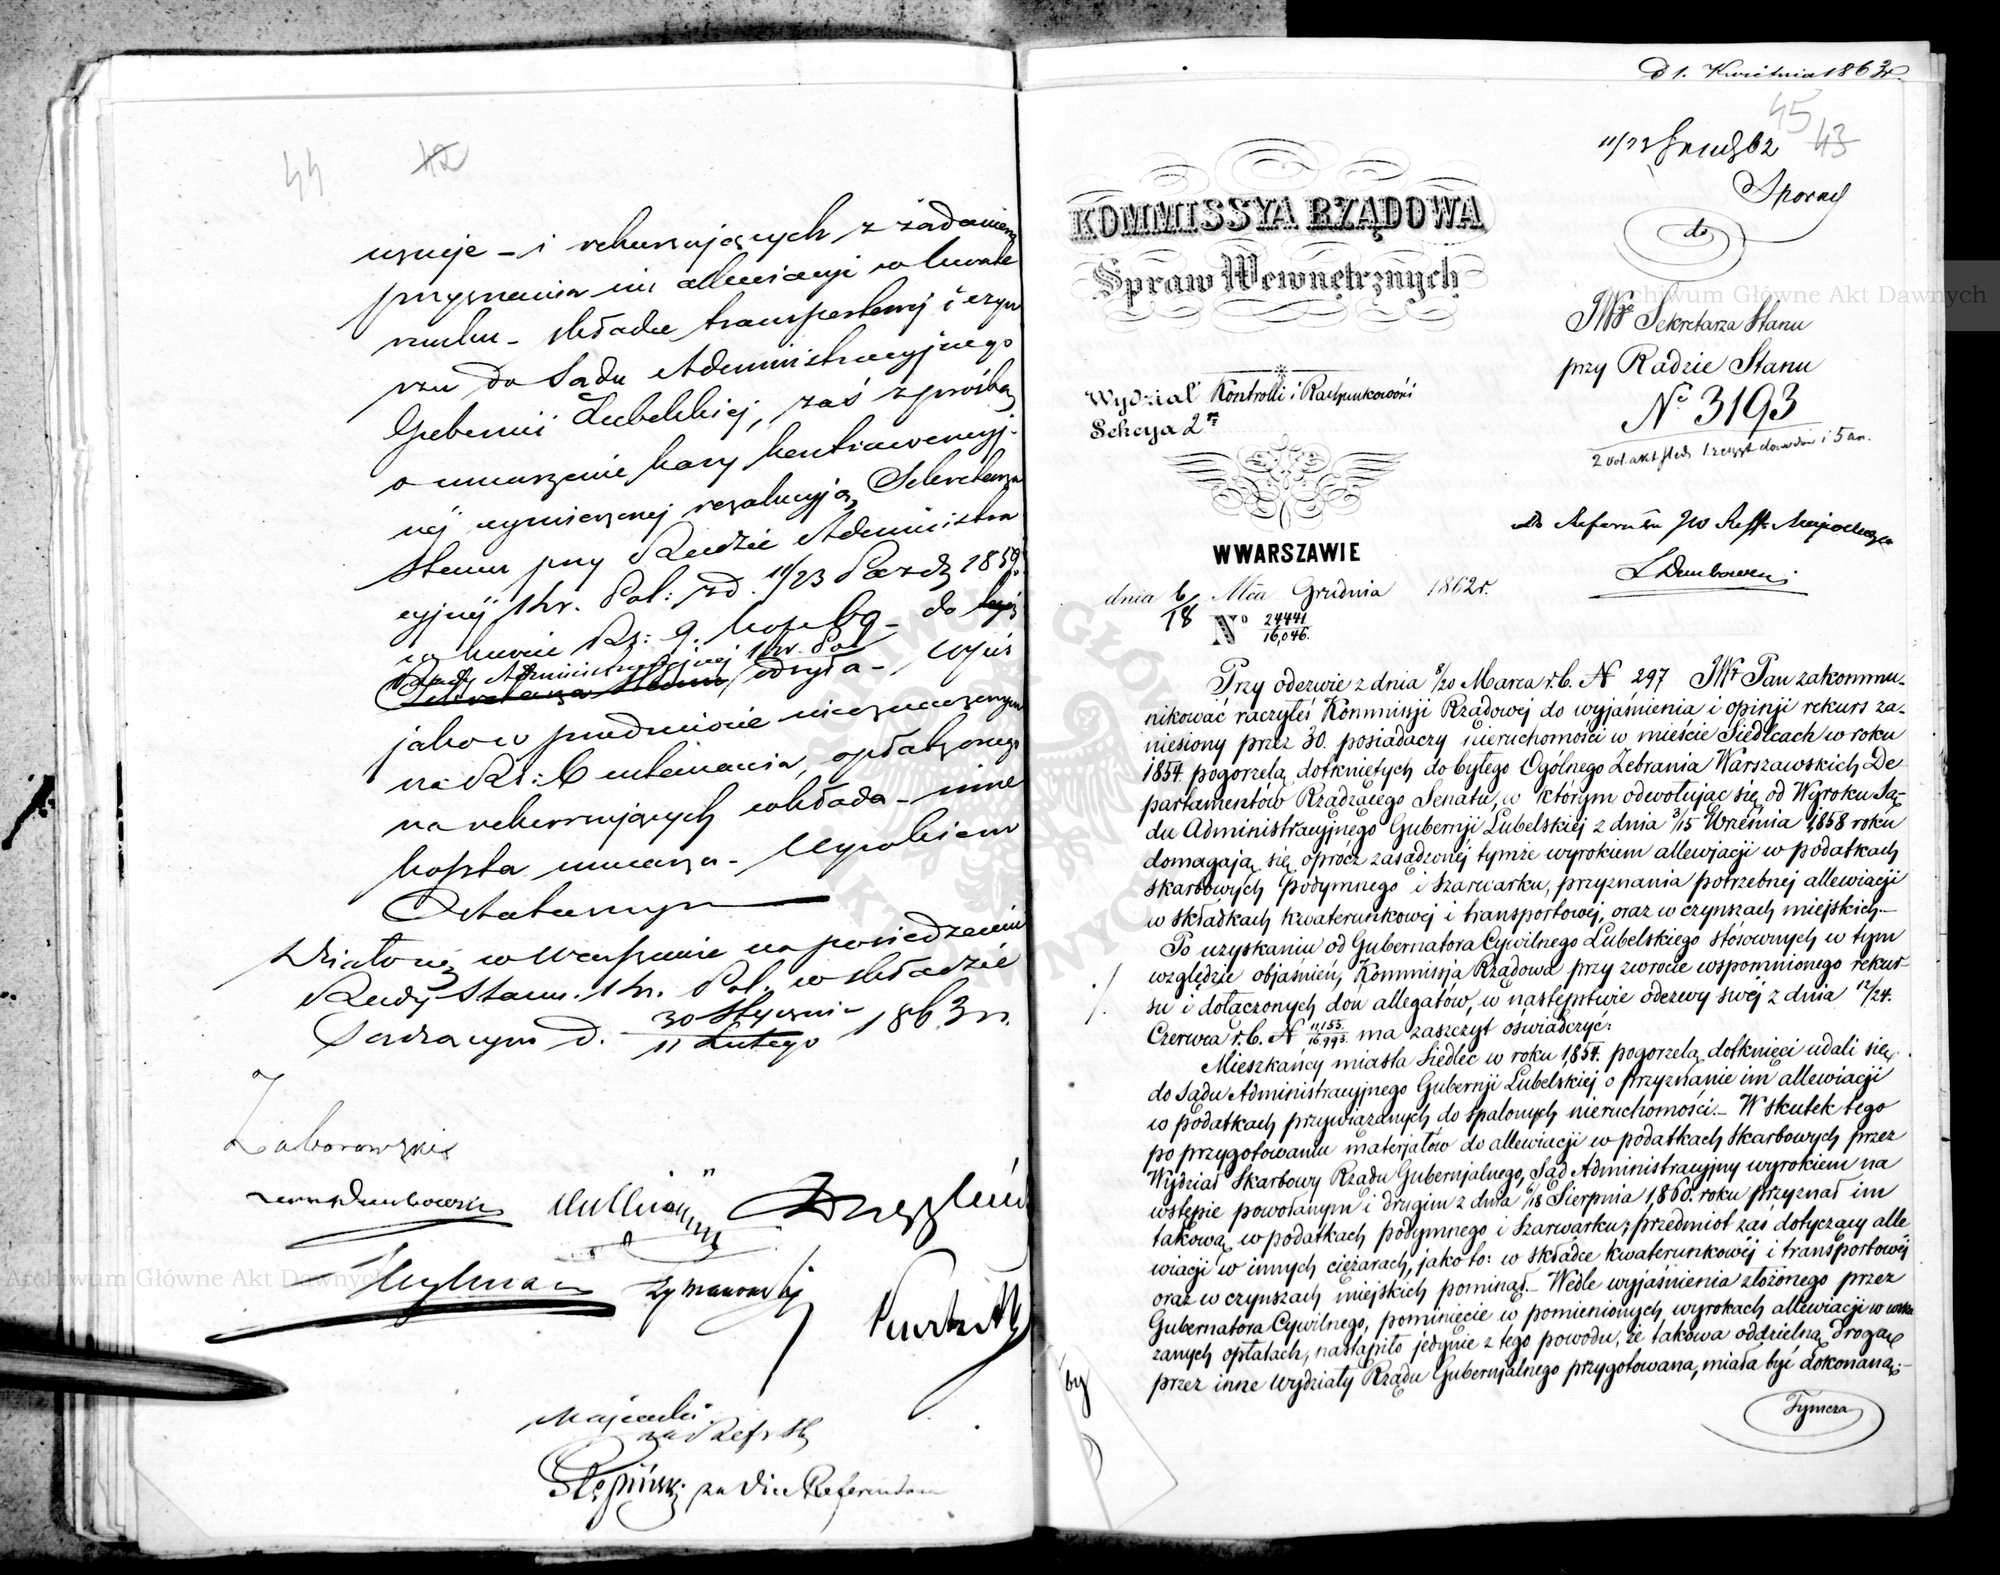 44 42
usuje – i rekurujących z żądaniem
przyznania im allewiacyi w kwate
runku – składce transportowej i czyn
szu do Sądu Administracyjnego
Gubernii Lubelskiej, zaś z prośbą
o umorzenie kary kontrawencyj-
nej wymierzonej rezolucyją Sekretarza
Stanu przy Radzie Administra
cyjnej Kr. Pol: z d. 11/23 Paźdz 1859
w kwocie Rs: 9. kop. 69 – do
Rady Administracyjnej Kr. Pol
Sekretarza Stanu odsyła – wpis
jako w przedmiocie nieoznaczonym
na Rs: 6 ustanawia, opłatą onego
na rekurujących wkłada – inne
koszta umarza – Wyrokiem
Ostatecznym
Działo się w Warszawie na posiedzeniu
Rady Stanu Kr. Pol. w składzie
Sądzącym d. 30 Stycznia / 11 Lutego 1863 r.
Zaborowski
Dembowski
Hylman
Szymanowski
Majewski
za Refr St
Stępiński za Vice Referendarz
D 1. Kwietnia 1863 r.
45 43
11/23 Grudz 62
KOMMISSYA RZĄDOWA
Spraw Wewnętrznych
do
JWgo Sekretarza Stanu
przy Radzie Stanu
No 3193
2 vol. akt śled. 1 zeszyt dowodów i 5 an.
Wydział Kontrolli i Rachunkowości
Sekcya 2ga
Do Referatu JW Reff.
LDembowski
W WARSZAWIE
dnia 6/18 Mca Grudnia 1862 r.
No 24441/16,046.
Przy odezwie z dnia 8/20 Marca r.b. N 297 JWr Pan zakommu-
nikować raczyłeś Kommissji Rządowej do wyjaśnienia i opinji rekurs za-
niesiony przez 30. posiadaczy nieruchomości w mieście Siedlcach w roku
1854. pogorzelą dotkniętych do byłego Ogólnego Zebrania Warszawskich De-
partamentów Rządzącego Senatu, w którym odwołując się od Wyroku Są-
du Administracyjnego Gubernji Lubelskiej z dnia 3/15 Września 1858 roku
domagają się oprócz zasądzonej tymże wyrokiem allewjacji w podatkach
skarbowych Podymnego i Szarwarku, przyznania potrzebnej allewiacji
w składkach kwaterunkowej i transportowej, oraz w czynszach miejskich. –
Po uzyskaniu od Gubernatora Cywilnego Lubelskiego stósownych w tym
względzie objaśnień, Kommissja Rządowa przy zwrocie wspomnionego rekur-
su i dołączonych doń allegatów, w następstwie odezwy swej z dnia 12/24.
Czerwca r.b. N 11,155./16,993. ma zaszczyt oświadczyć:
Mieszkańcy miasta Siedlec w roku 1,854. pogorzelą dotknięci udali się
do Sądu Administracyjnego Gubernji Lubelskiej o przyznanie im allewiacji
w podatkach przywiązanych do spalonych nieruchomości. – W skutek tego
po przygotowaniu materjałów do allewiacji w podatkach skarbowych przez
Wydział Skarbowy Rządu Gubernjalnego, Sąd Administracyjny wyrokiem na
wstępie powołanym i drugim z dnia 6/18 Sierpnia 1,860. roku przyznał im
takową w podatkach podymnego i szarwarku; przedmiot zaś dotyczący alle
wiacji w innych ciężarach, jako to: w składce kwaterunkowej i transportowej
oraz w czynszach miejskich pominął. – Wedle wyjaśnienia złożonego przez
Gubernatora Cywilnego, pominięcie w pomienionych wyrokach allewiacji w wska
zanych opłatach, nastąpiło jedynie z tego powodu, że takowa oddzielną drogą
przez inne wydziały Rządu Gubernjalnego przygotowana, miała być dokonaną; –
by